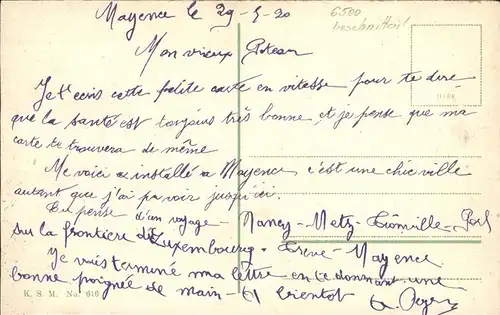 Mayence le 29-5-20
6500
beschnitten!
Mon vieux Poteau
Je t'ecris cette petite carte en vitesse pour te dire
que la santé est toujours très bonne et je pense que ma
carte te trouvera de même
Me voici installé a Mayence c'est une chic ville
autant que j'ai pu voir jusqu'ici.
Tu pense d'un voyage Nancy-Metz-Thionville-
sur la frontière Luxembourg. Treve-Mayence
Je vais terminé ma lettre en te donnant une
bonne poignée de main - A bientot
K. S. M. No. 616